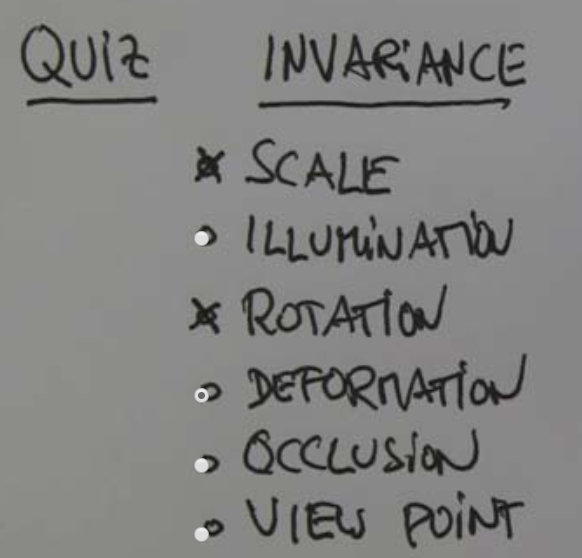 QUIZ INVARIANCE
SCALE
ILLUMINATION
ROTATION
DEFORMATION
OCCLUSION
VIEW POINT